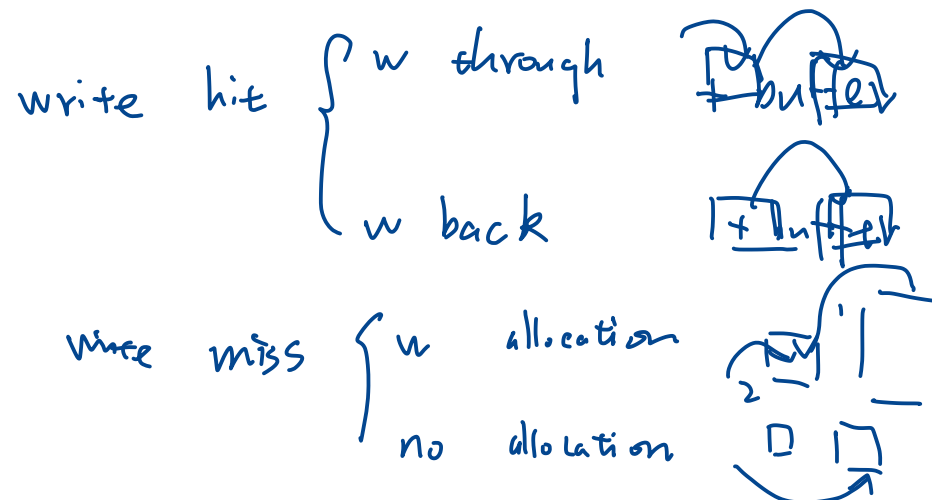 write hit { w through + buffer
w back + buffer
write miss { w allocation 2 1
no allocation